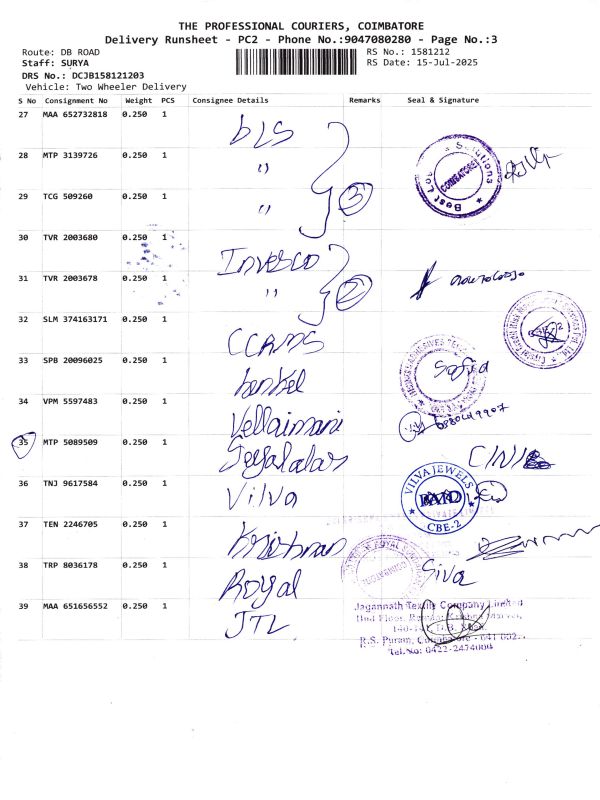 THE PROFESSIONAL COURIERS, COIMBATORE
Delivery Runsheet - PC2 - Phone No.:9047080280 - Page No.:3
Route: DB ROAD
RS No.: 1581212
Staff: SURYA
RS Date: 15-Jul-2025
DRS No.: DCJB158121203
Vehicle: Two Wheeler Delivery
S No Consignment No Weight PCS Consignee Details Remarks Seal & Signature
27 MAA 652732818 0.250 1 bLS
28 MTP 3139726 0.250 1 "
Best Solutions COIMBATORE
29 TCG 509260 0.250 1 " 3
30 TVR 2003680 0.250 1 Invesco
31 TVR 2003678 0.250 1 " 2
32 SLM 374163171 0.250 1 CCRMS
33 SPB 20096025 0.250 1 henkel Sofia
34 VPM 5597483 0.250 1 Vellaimani
35 MTP 5089509 0.250 1
36 TNJ 9617584 0.250 1 Vilva
VILVA JEWELS
CBE-2
37 TEN 2246705 0.250 1 Krishnan
38 TRP 8036178 0.250 1 Royal Siva
39 MAA 651656552 0.250 1 JTL
Jagannath Textile Company Limited
R.S. Puram, Coimbatore - 641 002.
Tel.No: 0422-2474004